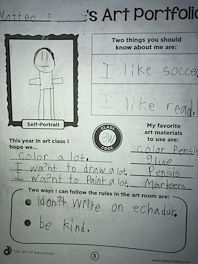 Matteo S 's Art Portfolio
Two things you should
know about me are:
I like soccer
I like read.
Self-Portrait
This year in art class I
hope we...
color a lot.
I wa?nt to draw a lot.
I wa?nt to Paint a lot.
My favorite
art materials
to use are:
Color Pensis
glue
Pensis
Markers
Two ways I can follow the rules in the art room are:
don?t write on echadur.
be kind.
The Art of Education
3